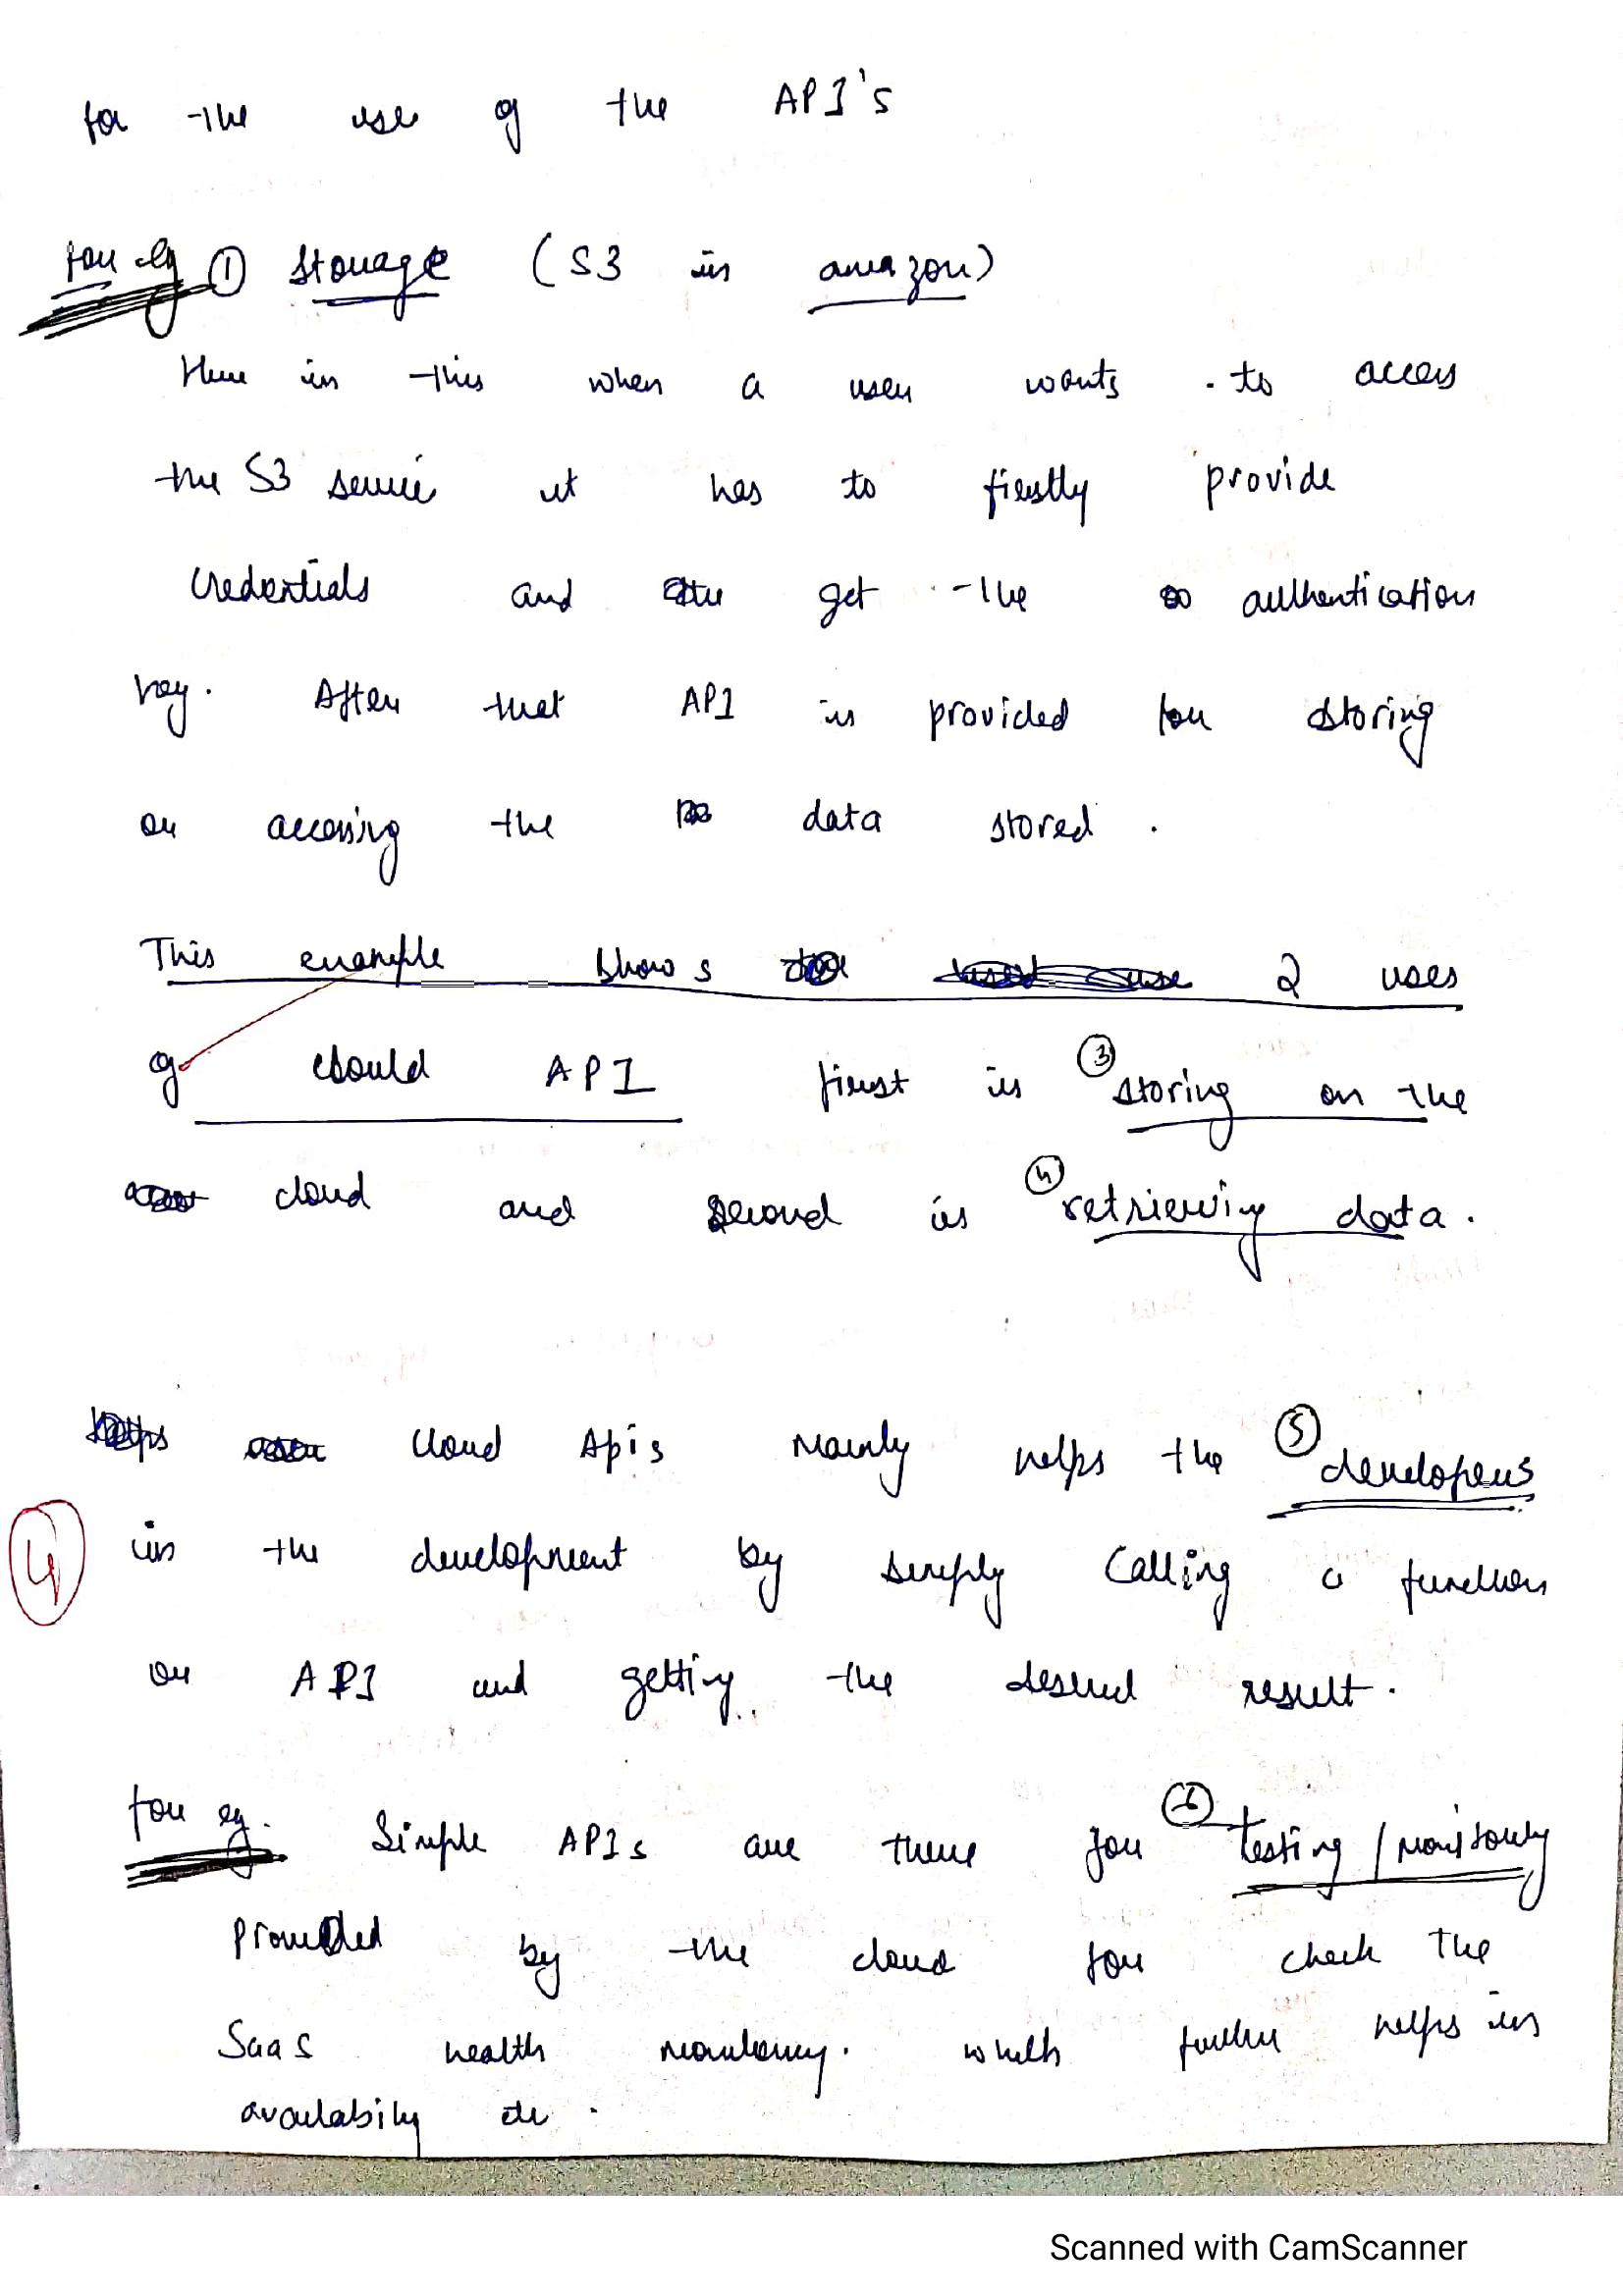 for the use of the API's
for eg ① Storage (S3 in amazon)
Here in this when a user wants to access
the S3 service it has to firstly provide
credentials and get the authentication
key. After that API is provided for storing
or accessing the data stored.
This example shows 2 uses
of cloud API first is ③ storing on the
cloud and second is ④ retrieving data.
Cloud Apis Mainly helps the ⑤ developers
4
in the development by simply Calling a function
or API and getting the desired result.
for eg. Simple APIs are there for ⑥ testing / monitoring
Provided by the cloud for check the
SaaS health monitoring. which further helps in
availability etc.
Scanned with CamScanner